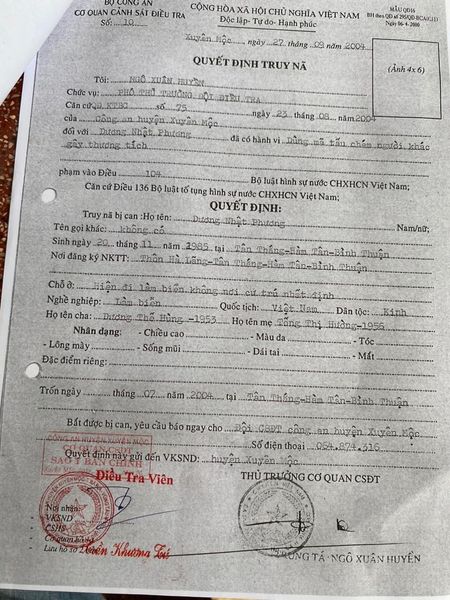 BỘ CÔNG AN
CƠ QUAN CẢNH SÁT ĐIỀU TRA
Số: 10
CỘNG HÒA XÃ HỘI CHỦ NGHĨA VIỆT NAM
Độc lập - Tự do- Hạnh phúc
MẪU QĐ16
BH theo QĐ số 295/QĐ-BCA(C11)
Ngày 06-4-2000
Xuyên Mộc ngày 27 tháng 09 năm 2004
QUYẾT ĐỊNH TRUY NÃ
(Ảnh 4x6)
Tôi: NGÔ XUÂN HUYỀN
Chức vụ: PHÓ THỦ TRƯỞNG ĐỘI ĐIỀU TRA
Căn cứ QĐ KTBC số 75 ngày 23 tháng 08 năm 2004
của Công an huyện Xuyên Mộc
đối với Dương Nhật Phương đã có hành vi Dùng mã tấu chém người khác
gây thương tích
phạm vào Điều 104 Bộ luật hình sự nước CHXHCN Việt Nam;
Căn cứ Điều 136 Bộ luật tố tụng hình sự nước CHXHCN Việt Nam;
QUYẾT ĐỊNH:
Truy nã bị can :Họ tên: Dương Nhật Phương Nam/nữ;
Tên gọi khác: không có
Sinh ngày 20 tháng 11 năm 1985 tại Tân Thắng-Hàm Tân-Bình Thuận
Nơi đăng ký NKTT: Thôn Hà Lãng-Tân Thắng-Hàm Tân-Bình Thuận
Chỗ ở: Hiện đi làm biển không nơi cư trú nhất định
Nghề nghiệp: Làm biển Quốc tịch: Việt Nam Dân tộc: Kinh
Họ tên cha: Dương Thế Hùng -1953 Họ tên mẹ Tống Thị Hường-1956
Nhân dạng: - Chiều cao - Màu da - Tóc
- Lông mày - Sống mũi - Dái tai - Mắt
Đặc điểm riêng:
Trốn ngày tháng 07 năm 2004 tại Tân Thắng-Hàm Tân-Bình Thuận
Bắt được bị can, yêu cầu báo ngay cho Đội CSĐT công an huyện Xuyên Mộc
Số điện thoại 064.874.316
Quyết định này gửi đến VKSND: huyện Xuyên Mộc
CÔNG AN HUYỆN XUYÊN MỘC
SAO Y BẢN CHÍNH
Điều Tra Viên
THỦ TRƯỞNG CƠ QUAN CSĐT
Nơi nhận:
- VKSND
- CSHS
- Cơ quan hồ sơ
- Lưu hồ sơ
Trần Khương Tú
TRUNG TÁ- NGÔ XUÂN HUYỀN